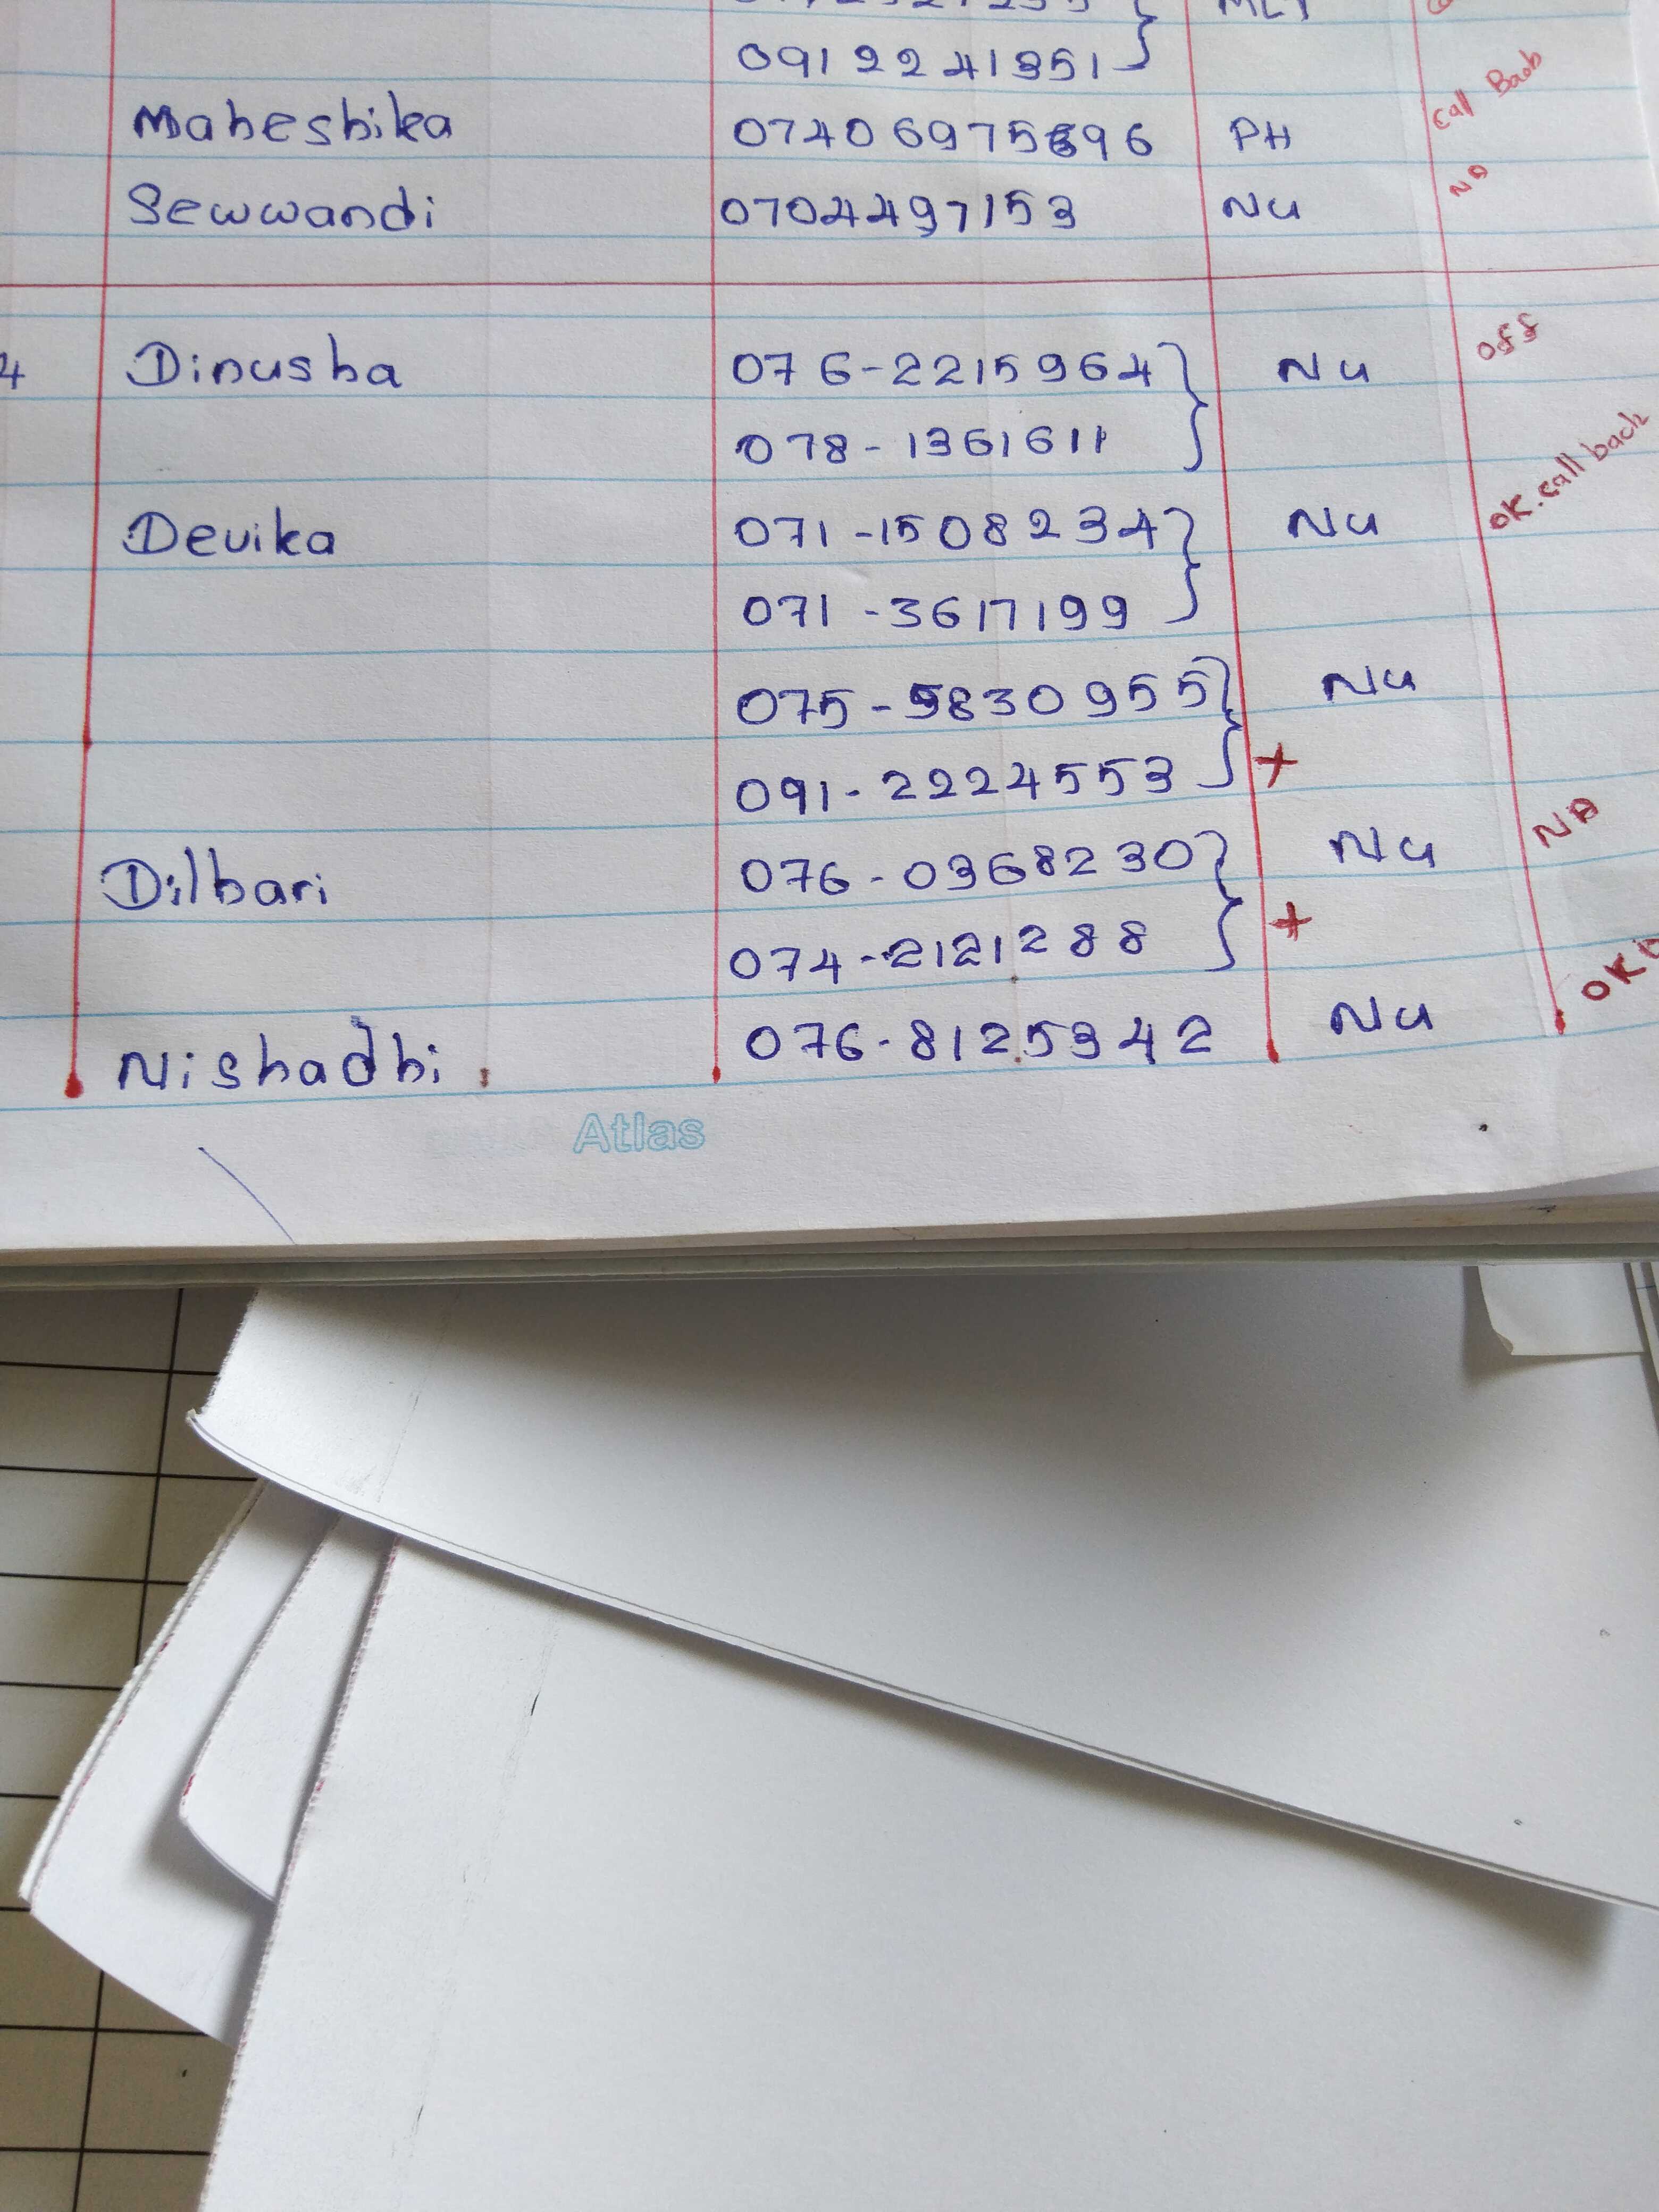 091 2241351
Maheshika 0740 6975696 PH call Back
Sewwandi 0704497153 NU NA
4 Dinusha 076-2215964 NU off
078-1361611
Devika 071-1508234 NU OK. call back
071-3617199
075-5830955 NU
091-2224553 +
Dilhari 076-0368230 NU NA
074-2121288 +
Nishadhi 076-8125342 NU OK
Atlas